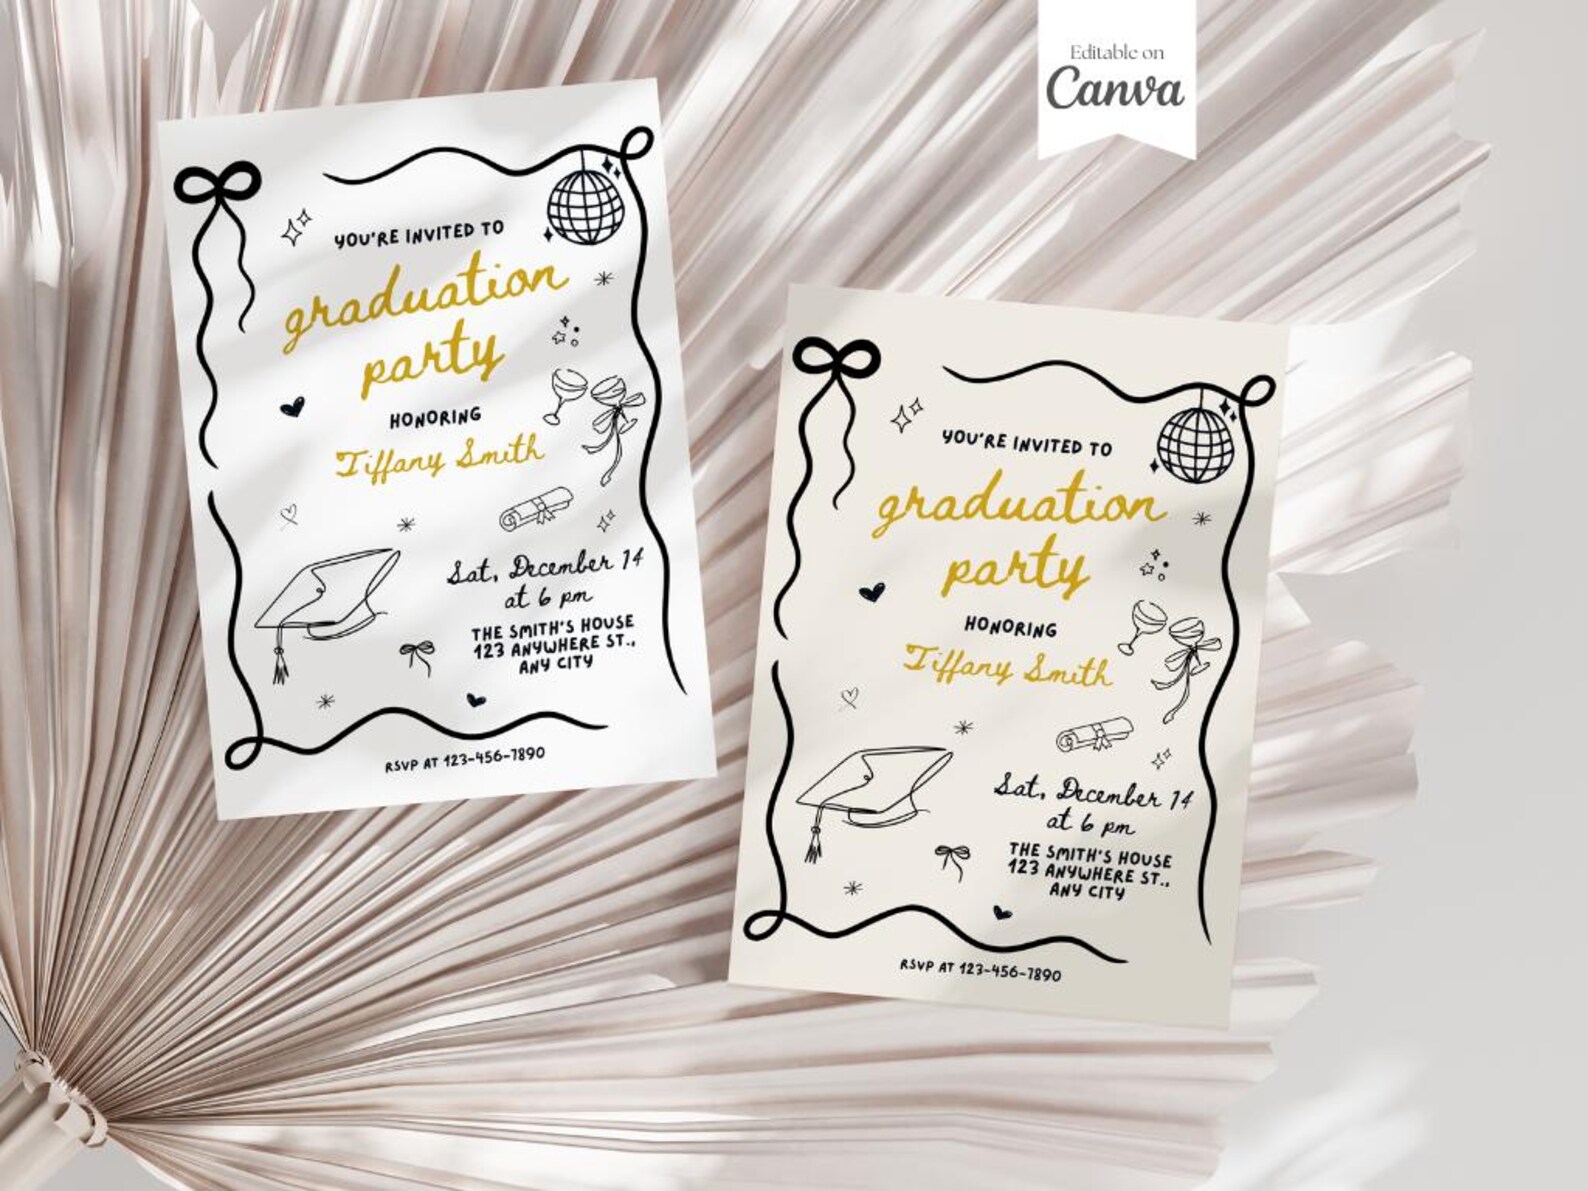 Editable on
Canva
YOU'RE INVITED TO
graduation
party
HONORING
Tiffany Smith
Sat, December 14
at 6 pm
THE SMITH'S HOUSE
123 ANYWHERE ST.,
ANY CITY
RSVP AT 123-456-7890
YOU'RE INVITED TO
graduation
party
HONORING
Tiffany Smith
Sat, December 14
at 6 pm
THE SMITH'S HOUSE
123 ANYWHERE ST.,
ANY CITY
RSVP AT 123-456-7890